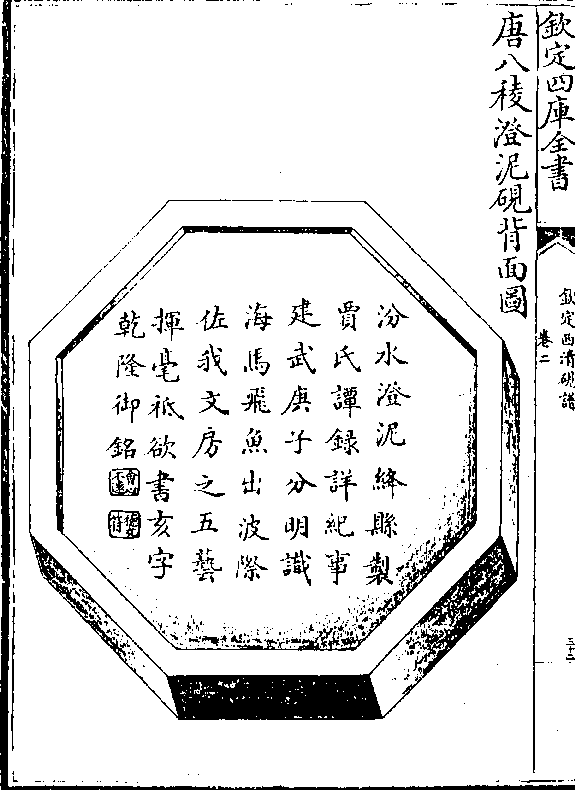 欽定四庫全書
欽定西清硯譜
卷二
三十二
唐八稜澄泥硯背面圖
汾水澄泥絳縣製
賈氏譚録詳紀事
建武庚子分明識
海馬飛魚出波際
佐我文房之五藝
揮毫祗欲書亥字
乾隆御銘